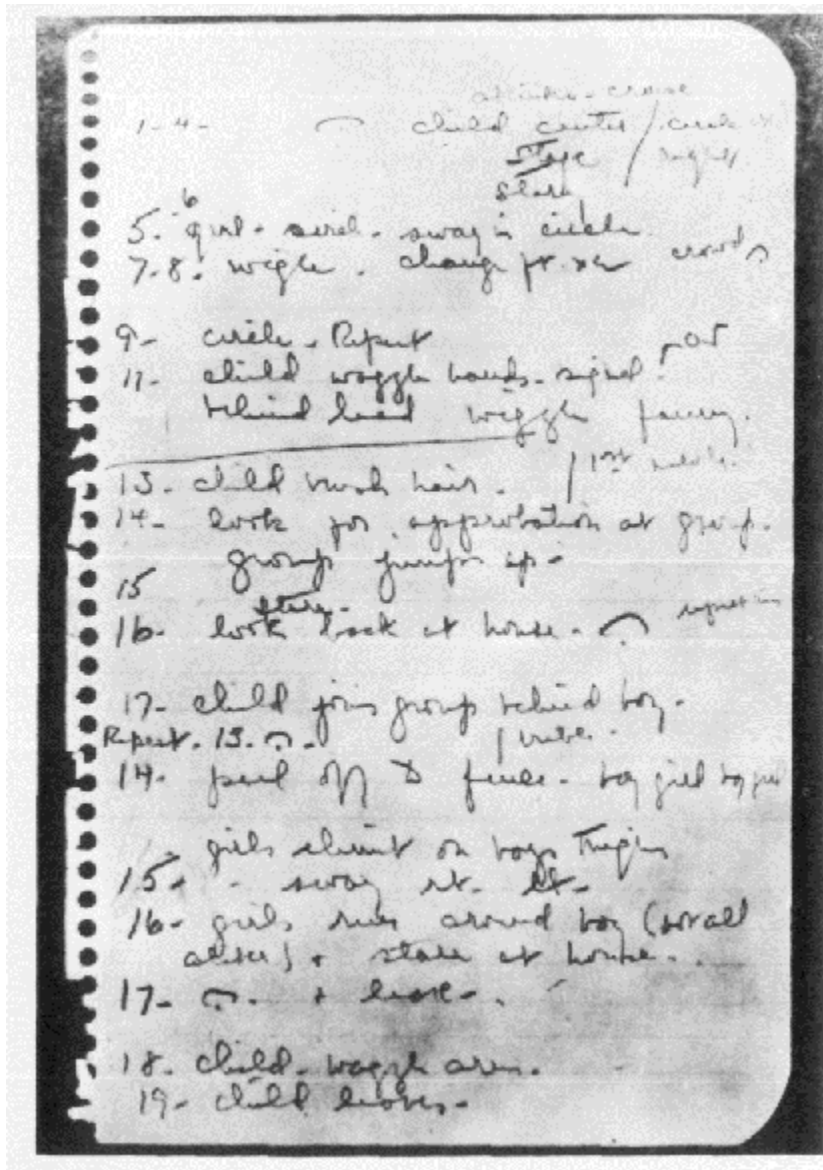 1-4- child center / circle
stage / right
stare
6
5. girl - swirl - sway in circle
7-8. wiggle. change crowds
9- circle. Repeat
11. child waggle hands - signal.
behind head wiggle fanny.
13- child brush hair. / 1st
14- look for approbation at group.
group jumps up-
15
stare-
16- look back at house-
17- child joins group behind boy-
Repeat. 13.
14- peel off to fence- boy girl boy girl
girls on boys thighs
15- - sway rt. lt.
16- girls run around boy (not all
alike) + stare at house-
17- +
18- child- waggle arms.
19- child leaves-